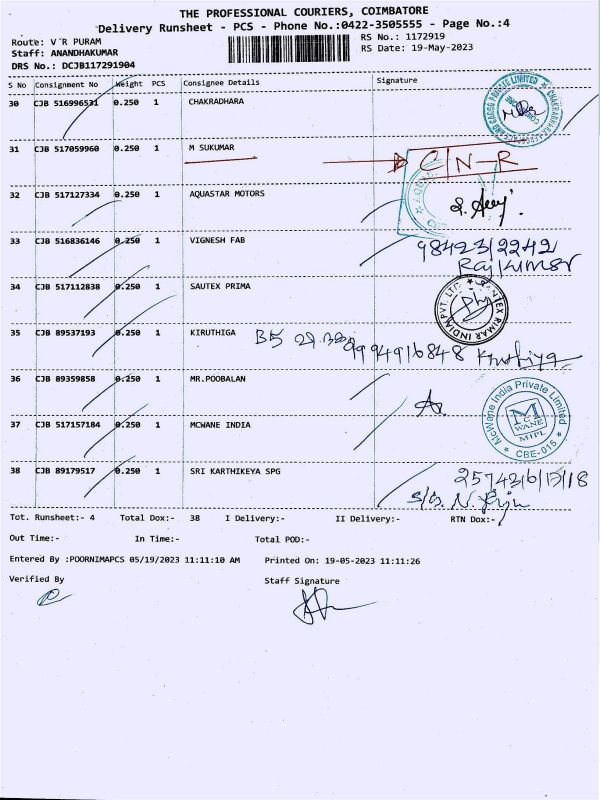 THE PROFESSIONAL COURIERS, COIMBATORE
Delivery Runsheet - PCS - Phone No.:0422-3505555 - Page No.:4
Route: V R PURAM
RS No.: 1172919
Staff: ANANDHAKUMAR
RS Date: 19-May-2023
DRS No.: DCJB117291904
S No Consignment No Weight PCS Consignee Details Signature
30 CJB 516996531 0.250 1 CHAKRADHARA
31 CJB 517059960 0.250 1 M SUKUMAR C/N-R
32 CJB 517127334 0.250 1 AQUASTAR MOTORS
33 CJB 516836146 0.250 1 VIGNESH FAB 98423/2242
Rajkumar
34 CJB 517112838 0.250 1 SAUTEX PRIMA
35 CJB 89537193 0.250 1 KIRUTHIGA 9994916848 Kruthiya
36 CJB 89359858 0.250 1 MR.POOBALAN
37 CJB 517157184 0.250 1 MCWANE INDIA
McWane India Private Limited
MCWANE
MIPL
CBE-015
38 CJB 89179517 0.250 1 SRI KARTHIKEYA SPG
Tot. Runsheet:- 4 Total Dox:- 38 I Delivery:- II Delivery:- RTN Dox:-
Out Time:- In Time:- Total POD:-
Entered By :POORNIMAPCS 05/19/2023 11:11:10 AM Printed On: 19-05-2023 11:11:26
Verified By Staff Signature